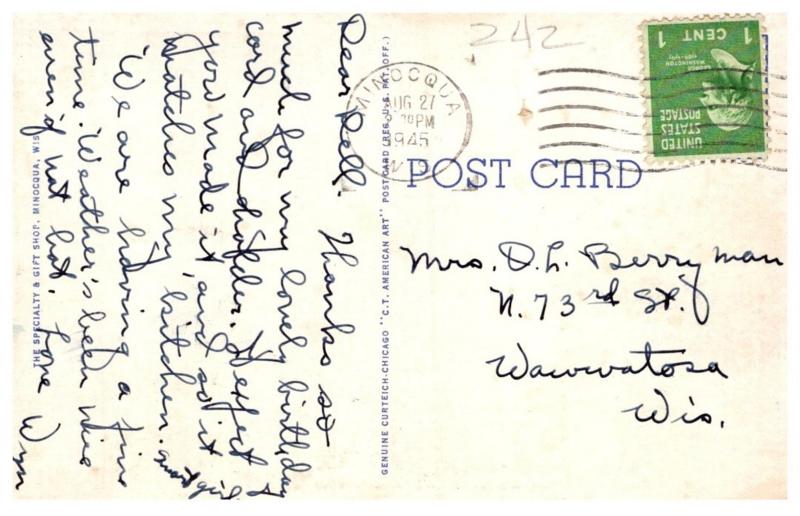 242
MINOCQUA
AUG 27
PM
1945
WIS
UNITED
STATES
POSTAGE
GEORGE
WASHINGTON
1789-1797
1 CENT 1
POST CARD
Mrs. D. L. Berryman
N. 73rd St.
Wauwatosa
Wis.
Dear Dell. Thanks so
much for my lovely birthday
card and holder. Perfect
you made it, and so it
matches my kitchen. Smart girl
We are having a fine
time. Weather's been nice
even'g not hot. Love Wyn
GENUINE CURTEICH-CHICAGO "C.T. AMERICAN ART" POST CARD (REG. U.S. PAT. OFF.)
THE SPECIALTY & GIFT SHOP, MINOCQUA, WIS